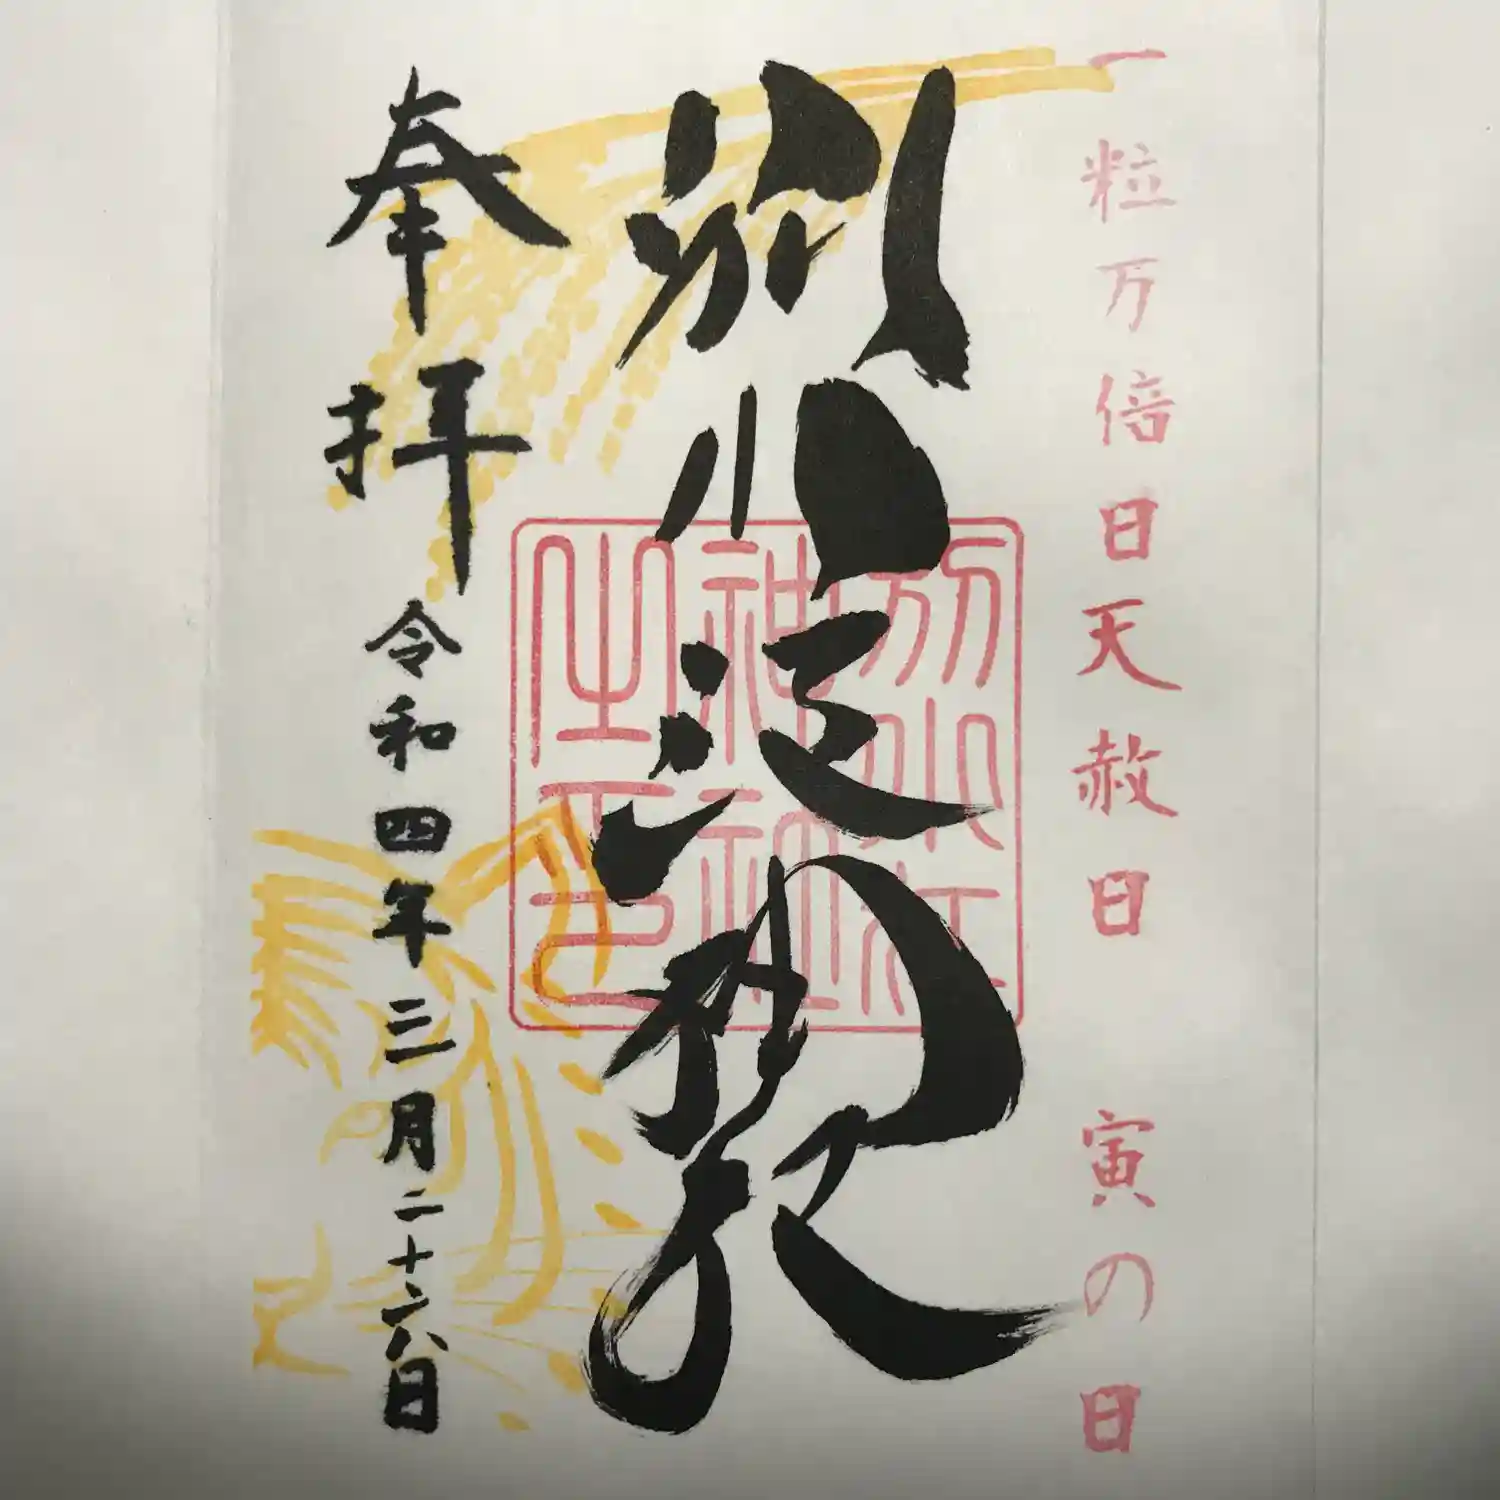 一粒万倍日天赦日 寅の日
別小江神社
別小江
神社
之印
奉拝
令和四年三月二十六日